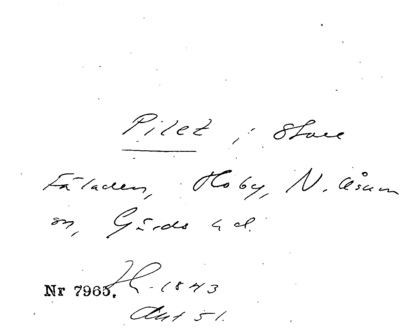 Pilet, i Stora
Fäladen, Hoby, N. Åsum
sn, Gärds hd.
Nr 7965. 1843
51.